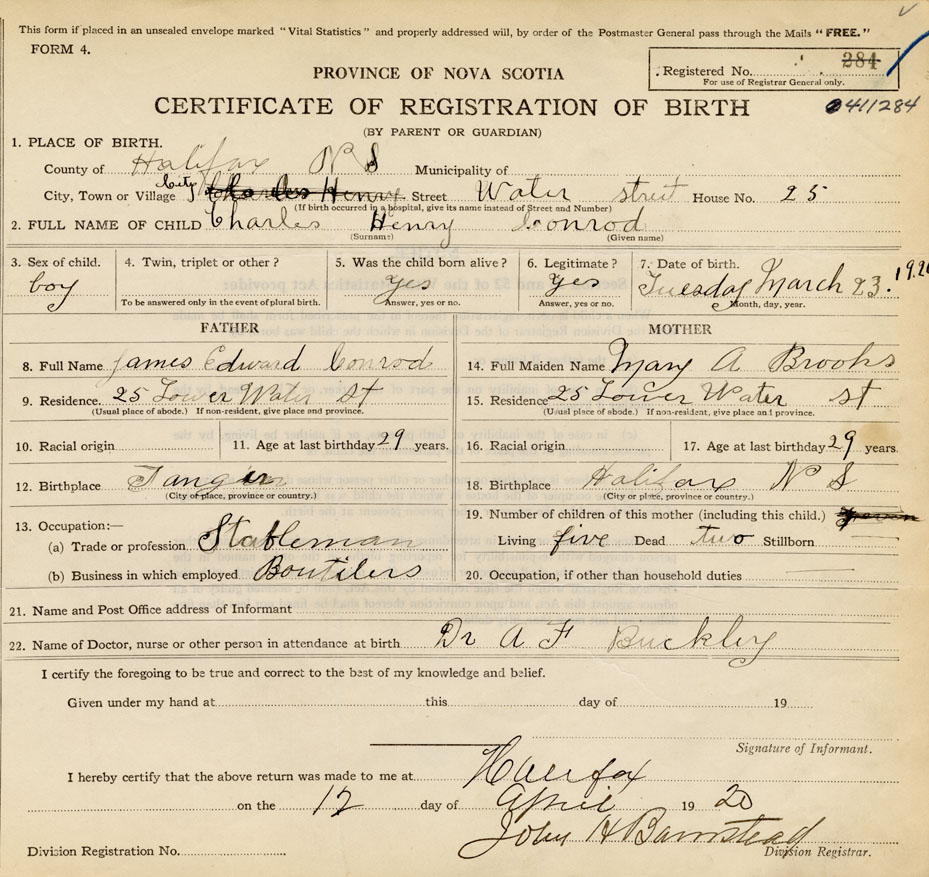 This form if placed in an unsealed envelope marked "Vital Statistics" and properly addressed will, by order of the Postmaster General pass through the Mails "FREE."
FORM 4.
Registered No. 284
For use of Registrar General only.
PROVINCE OF NOVA SCOTIA
CERTIFICATE OF REGISTRATION OF BIRTH
411284
(BY PARENT OR GUARDIAN)
1. PLACE OF BIRTH.
County of Halifax N S Municipality of
City, Town or Village City Charles Henry Street Water street House No. 25
(If birth occurred in a hospital, give its name instead of Street and Number)
2. FULL NAME OF CHILD Charles Henry Conrod
(Surname) (Given name)
3. Sex of child. 4. Twin, triplet or other? 5. Was the child born alive? 6. Legitimate? 7. Date of birth.
boy yes yes Tuesday March 23. 1920
To be answered only in the event of plural birth. Answer, yes or no. Answer, yes or no. Month, day, year.
FATHER MOTHER
8. Full Name James Edward Conrod 14. Full Maiden Name Mary A Brooks
9. Residence. 25 Lower Water St 15. Residence 25 Lower Water st
(Usual place of abode.) If non-resident, give place and province. (Usual place of abode.) If non-resident, give place and province.
10. Racial origin 11. Age at last birthday 29 years. 16. Racial origin 17. Age at last birthday 29 years.
12. Birthplace Tangier 18. Birthplace Halifax N S
(City or place, province or country.) (City or place, province or country.)
13. Occupation:— 19. Number of children of this mother (including this child.)
(a) Trade or profession Stableman Living five Dead two Stillborn —
(b) Business in which employed Boutilers 20. Occupation, if other than household duties —
21. Name and Post Office address of Informant
22. Name of Doctor, nurse or other person in attendance at birth Dr A F Buckley
I certify the foregoing to be true and correct to the best of my knowledge and belief.
Given under my hand at this day of 19
Signature of Informant.
I hereby certify that the above return was made to me at Halifax
on the 12 day of April 1920
John H Barnstead
Division Registration No. Division Registrar.